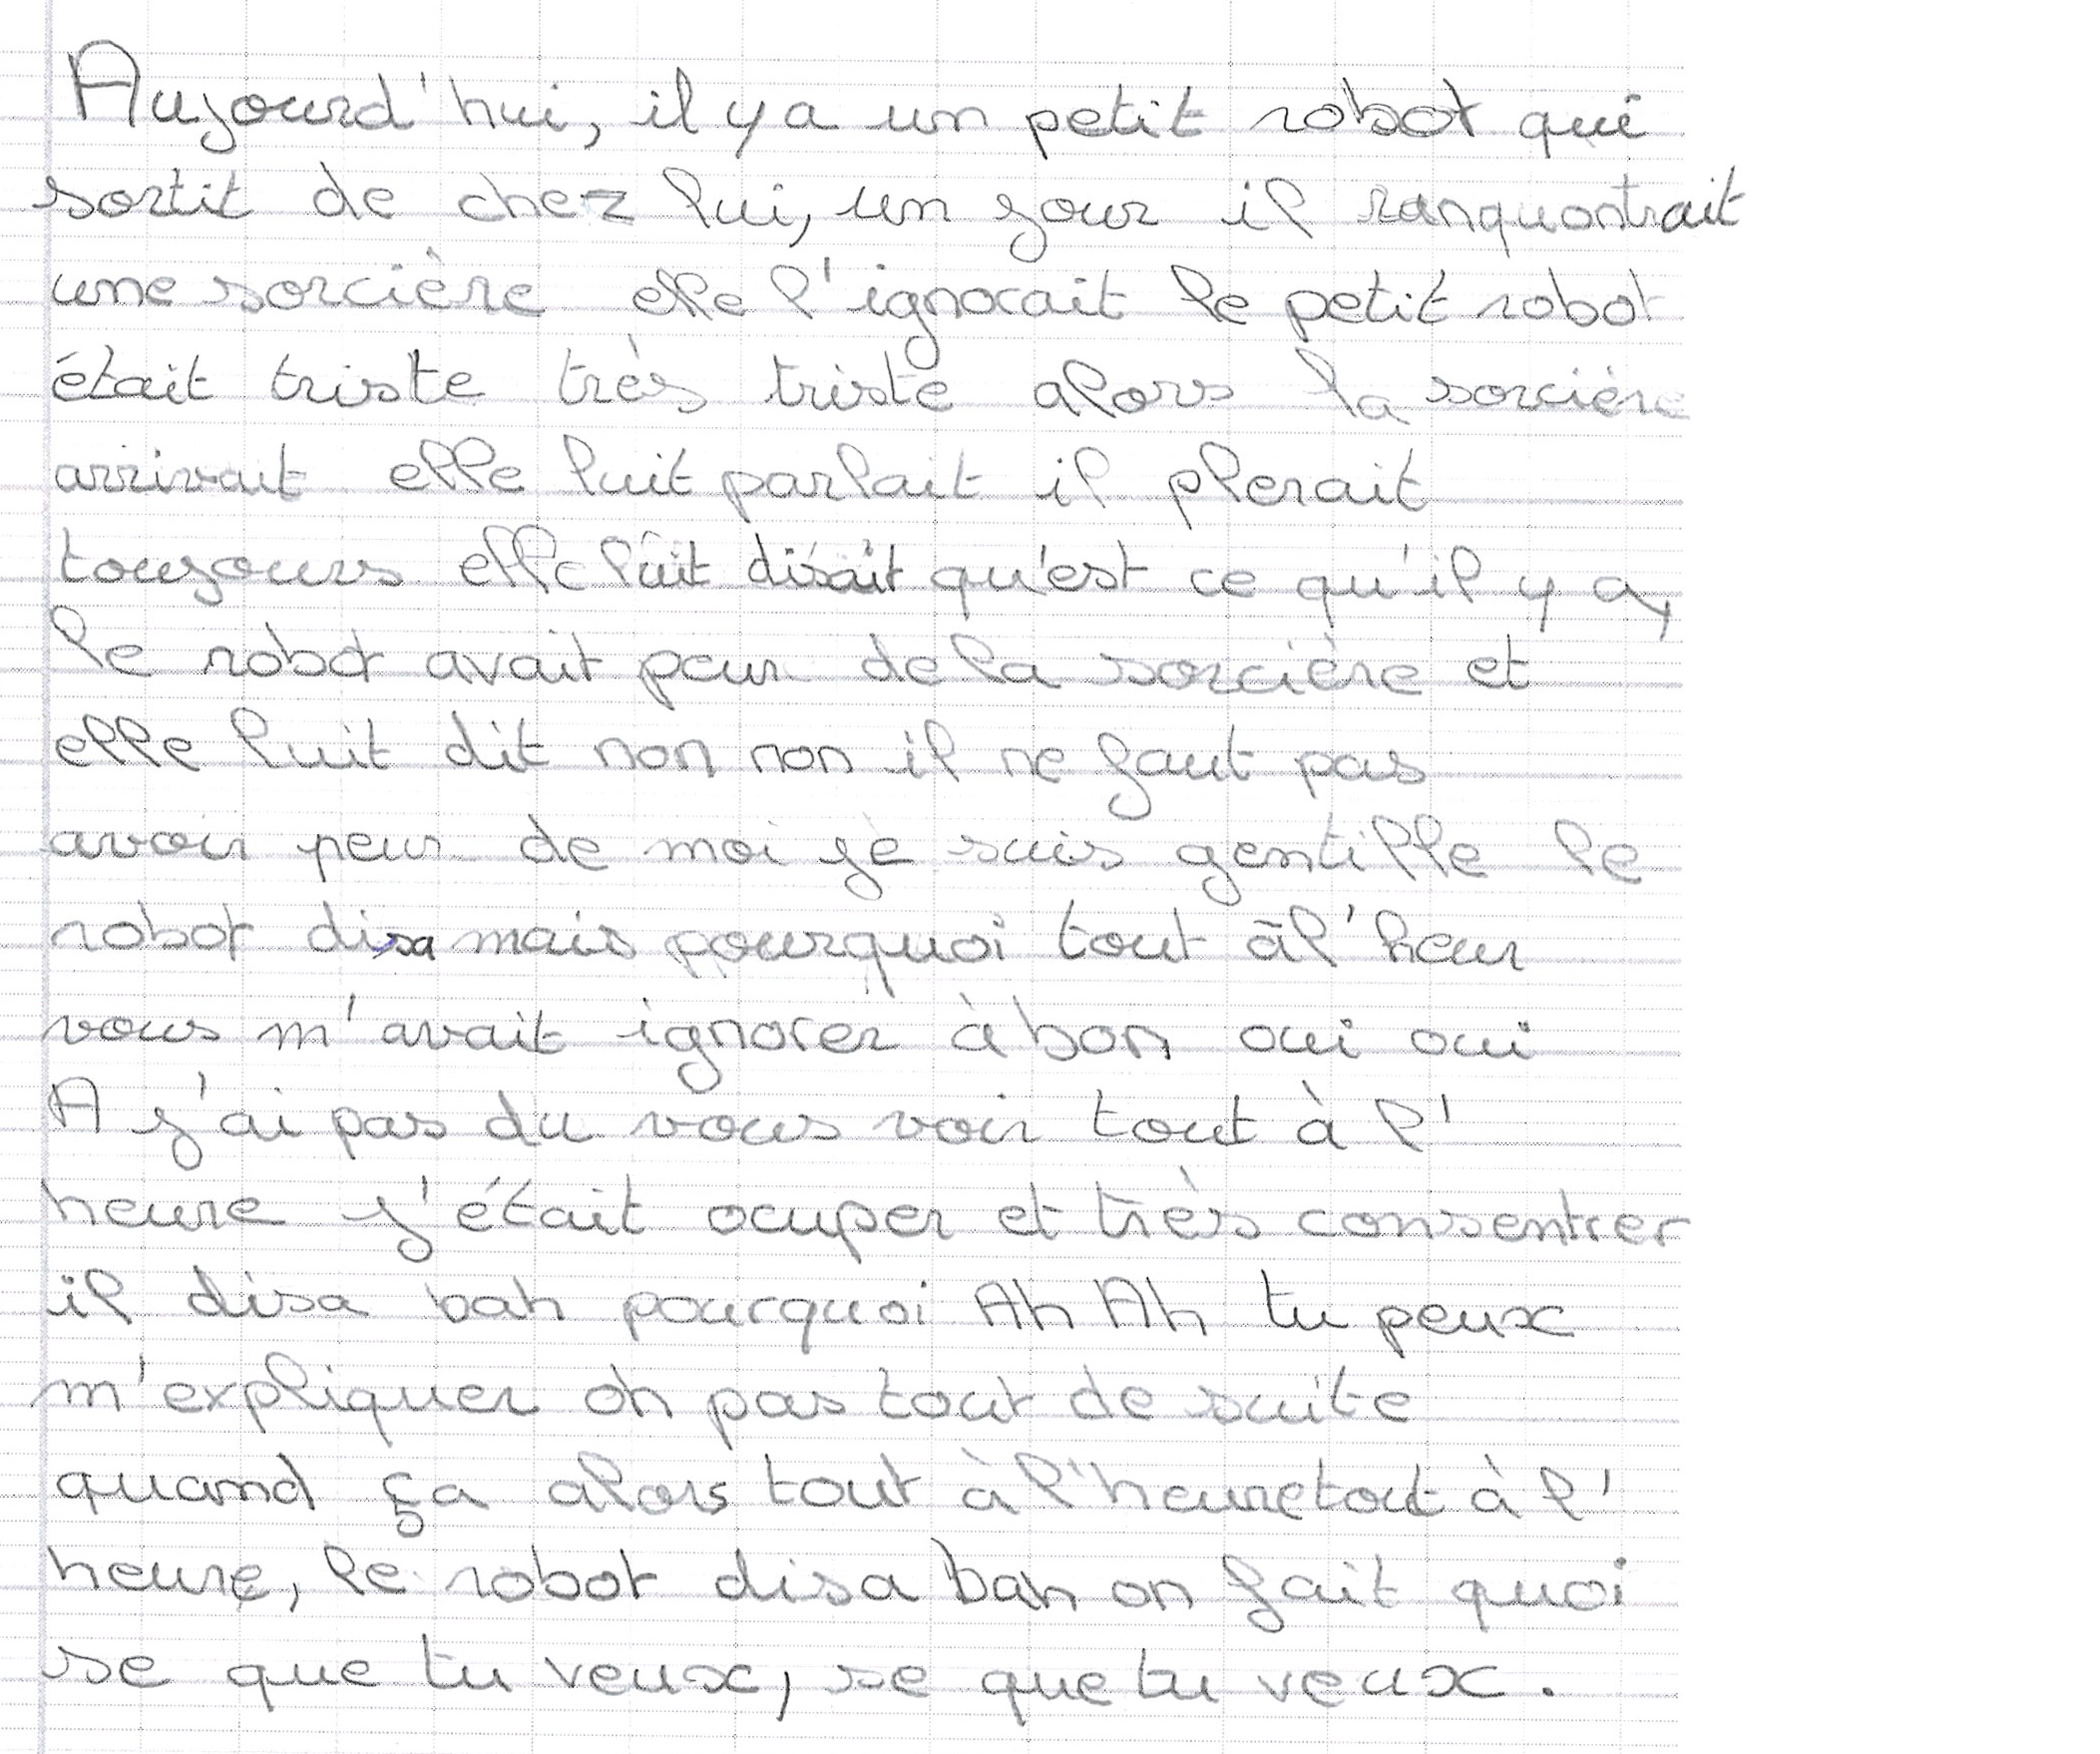 Aujourd'hui, il y a un petit robot qui
sortit de chez lui, un jour il ranquontrait
une sorcière elle l'ignorait le petit robot
était triste très triste alors la sorcière
arrivait elle luit parlait il plerait
toujours elle luit disait qu'est ce qu'il y a,
le robot avait peur de la sorcière et
elle luit dit non non il ne faut pas
avoir peur de moi je suis gentille le
robot disa mais pourquoi tout à l'heur
vous m'avait ignorer à bon oui oui
A j'ai pas du vous voir tout à l'
heure j'était ocuper et très consentrer
il disa bah pourquoi Ah Ah tu peux
m'expliquer oh pas tout de suite
quand ça alors tout à l'heure tout à l'
heure, le robot disa bah on fait quoi
se que tu veux, se que tu veux.